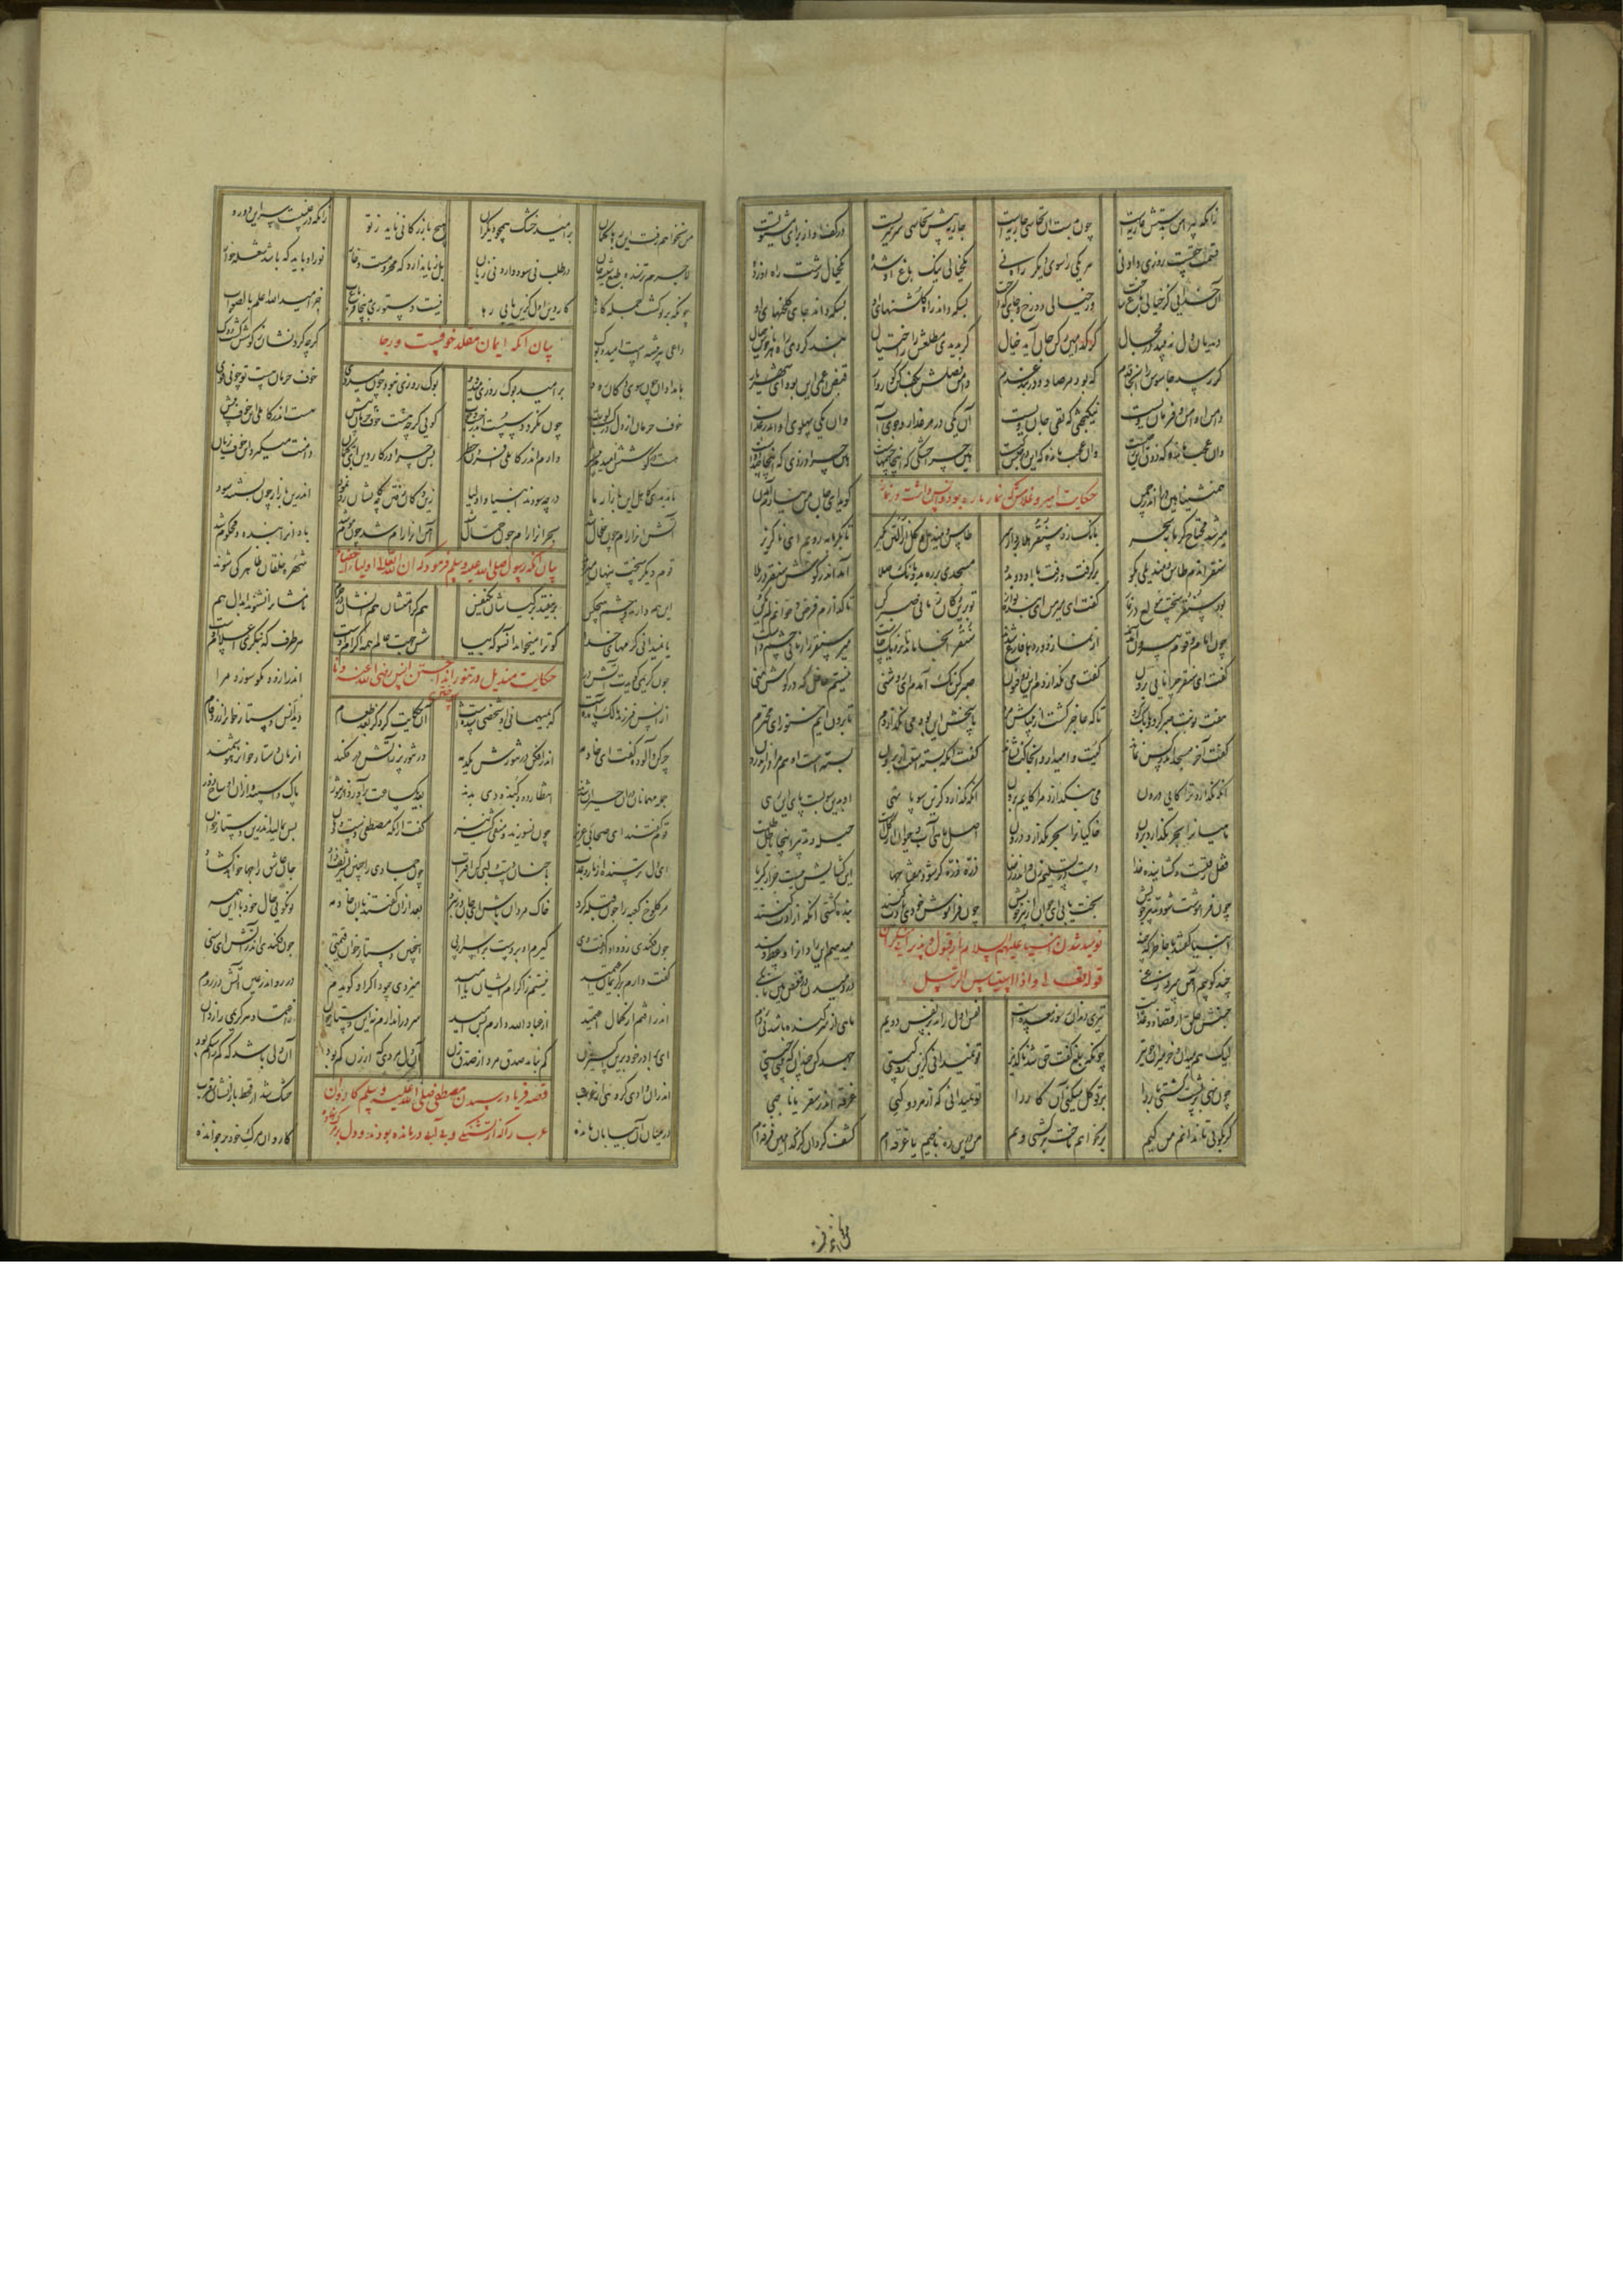 زانکه پیرامن جاریه است چون جاریه است جاریه پیش سرسریست در کف او از برای مشتریست
قسمت حقست روزی دادنی هر یکی را سوی دیگر راه نی یک خیال نیک باغ آن شده یک خیال زشت راه این زده
آن خدایی کز خیالی باغ ساخت وز خیالی دوزخ و جای گداخت پس که داند راه گلشنهای او پس که داند جای گلخنهای او
دیدبان دل نبیند در مجال کز کدامین رکن جان آید خیال گر بدیدی مطلعش را ز احتیال بند کردی راه هر ناخوش خیال
کی رسد جاسوس را آنجا قدم که بود مرصاد و دربند عدم دامن فضلش بکف کن کوروار قبض اعمی این بود ای شهریار
دامن او امر و فرمان ویست نیکبختی که تقی جان ویست آن یکی در مرغزار و جوی آب وان یکی پهلوی او اندر عذاب
وان عجب مانده که ذوق این ز چیست وان عجب مانده که این در حبس کیست هین چرا خشکی که اینجا چشمهاست هین چرا زردی که اینجا صد دواست
همنشینا هین درآ اندر چمن گوید ای جان من نیارم آمدن
حکایت امیر و غلامش که نماز باره بود و انس داشت در نماز
میر شد محتاج گرمابه سحر بانگ زد سنقر هلا بردار سر طاس و مندیل و گل از آلتون بگیر تا بگرمابه رویم ای ناگزیر
سنقر آن دم طاس و مندیلی نکو برگرفت و رفت با او دو بدو مسجدی بر ره بد و بانگ صلا آمد اندر گوش سنقر در ملا
بود سنقر سخت مولع در نماز گفت ای میر من ای بنده نواز تو برین دکان زمانی صبر کن تا گذارم فرض و خوانم لم یکن
چون امام و قوم بیرون آمدند از نماز و وردها فارغ شدند سنقر آنجا ماند تا نزدیک چاشت میر سنقر را زمانی چشم داشت
گفت ای سنقر چرا نایی برون گفت می نگذاردم این ذوفنون صبر کن نک آمدم ای روشنی نیستم غافل که در گوش منی
هفت نوبت صبر کرد و بانگ کرد تا که عاجز گشت از تیباش مرد پاسخش این بود می نگذاردم تا برون آیم هنوز ای محترم
گفت آخر مسجد اندر کس نماند کیت وا میدارد آنجا کت نشاند گفت آنکه بسته استت از برون بسته است او هم مرا در اندرون
آنکه نگذارد ترا کایی درون می بنگذارد مرا کایم برون آنکه نگذارد کزین سو پا نهی او بدین سو بست پای این رهی
ماهیان را بحر نگذارد برون خاکیان را بحر نگذارد درون اصل ماهی آب و حیوان از گلست حیله و تدبیر اینجا باطلست
قفل زفتست و گشاینده خدا دست در تسلیم زن و اندر رضا ذره ذره گر شود مفتاحها این گشایش نیست جز از کبریا
چون فراموشت شود تدبیر خویش بخت یابی ای جوان از پیر خویش چون فراموش خودی یادت کنند بنده گشتی آنگه آزادت کنند
نومید شدن انبیا علیهم السلام از قبول و پذیرایی منکران
قوله تعالی اذا استیاس الرسل
انبیا گفتند با خاطر که چند میدهیم این را و آن را وعظ و پند
چند کوبیم آهن سردی ز غی در دمیدن در قفص هین تا بکی
جنبش خلق از قضا و وعده است تیزی دندان ز سوز معده است نفس اول راند بر نفس دویم ماهی از سر گنده باشد نی ز دم
لیک هم میدان و خر میران چو تیر چونکه بلغ گفت حق شد ناگزیر تو نمیدانی کزین دو کیستی جهد کن چندانکه بینی چیستی
چون نهی بر پشت کشتی بار را بر توکل میکنی آن کار را تو نمیدانی که از هر دو کیی غرقه اندر سفر یا ناجیی
گر بگویی تا ندانم من کیم بر نخواهم تاخت بر کشتی و یم من درین ره ناجیم یا غرقه ام کشف گردان کز کدامین فرقه ام
من نخواهم رفت این ره با گمان بر امید خشک همچو دیگران هیچ بازرگانی ناید ز تو زانکه در غیبست سر این دو رو
تاجر ترسنده طبع شیشه جان در طلب نی سود دارد نی زیان بل زیان دارد که محرومست و خوار نور او یابد که باشد شعله خوار
چونکه بر بوکست جمله کارها کار دین اولی کزین یابی رها نیست دستوری بدینجا قرع باب جز امید الله اعلم بالصواب
بیان آنکه ایمان مقلد خوفست و رجا
داعی هر پیشه امیدست و بوک گرچه گردنشان ز کوشش شد چو دوک
بامدادان چون سوی دکان رود بر امید و بوک روزی میدود بوک روزی نبودت چون میروی خوف حرمان هست تو چونی قوی
خوف حرمان ازل در کسب لوت چون نکردت سست اندر جست و جوت گویی گرچه هست خوف حرمان پیش هست اندر کاهلی این خوف بیش
هست در کوشش امیدم بیشتر دارم اندر کاهلی افزون خطر پس چرا در کار دین ای بدگمان دامنت میگیرد این خوف زیان
یا ندیدی کاهل این بازار ما در چه سودند انبیا و اولیا زین دکان رفتن چه کانشان رو نمود اندرین بازار چون بستند سود
آتش آنرا رام چون خلخال شد بحر آنرا رام چون حمال شد آهن آنرا رام شد چون موم شد باد آنرا بنده و محکوم شد
بیان آنکه رسول صلی الله علیه و سلم فرمود که ان لله تعالی اولیاء اخفیاء
قوم دیگر سخت پنهان میروند شهره خلقان ظاهر کی شوند
این همه دارند و چشم هیچکس بر نیفتد بر کیاشان یکنفس هم کرامتشان هم ایشان در حرم نامشان را نشنوند ابدال هم
یا نمیدانی کرمهای خدا کو ترا میخواند آنسو که بیا شش جهت عالم همه اکرام اوست هر طرف که بنگری اعلام اوست
چون کریمی گویدت آتش درآ اندرآ زود و مگو سوزد مرا
حکایت مندیل در تنور انداختن انس رضی الله عنه و ناسوختن
از انس فرزند مالک آمدست که بمهمانی او شخصی شدست او حکایت کرد کز بعد طعام دید انس دستارخوان را زردفام
چرکن و آلوده گفت ای خادمه اندر افکن در تنورش یکدمه در تنور پر ز آتش در فکند آن زمان دستارخوان را هوشمند
جمله مهمانان در آن حیران شدند انتظار دود کندوری بدند بعد یکساعت برآورد از تنور پاک و اسپید و از آن اوساخ دور
قوم گفتند ای صحابی عزیز چون نسوزید و منقی گشت نیز گفت زانکه مصطفی دست و دهان بس بمالید اندرین دستارخوان
ای دل ترسنده از نار و عذاب با چنان دست و لبی کن اقتراب چون جمادی را چنین تشریف داد جان عاشق را چها خواهد گشاد
مر کلوخ کعبه را چون قبله کرد خاک مردان باش ای جان در نبرد بعد از آن گفتند با آن خادمه تو نگویی حال خود با این همه
چون فکندی زود آن از گفت وی گیرم او بردست در اسرار پی اینچنین دستارخوان قیمتی چون فکندی اندر آتش ای ستی
گفت دارم بر کریمان اعتمید نیستم ز اکرام ایشان ناامید میزری چبود اگر او گویدم در رو اندر عین آتش در روم
اندر افتم از کمال اعتمید از عباد الله دارم بس امید سر دراندازم نه این دستارخوان ز اعتماد هر کریم رازدان
ای برادر خود برین اکسیر زن کم نباید صدق مرد از صدق زن آن دل مردی که از زن کم بود آن دلی باشد که کم ز اشکم بود
قصه فریاد رسیدن مصطفی صلی الله علیه و سلم کاروان
عرب را که از تشنگی و بی آبی در مانده بودند و دل بر مرگ نهاده
اندر آن وادی گروهی از عرب خشک شد از قحط بارانشان قرب
در میان آن بیابان مانده کاروانی مرگ خود بر خوانده
من نخواهم